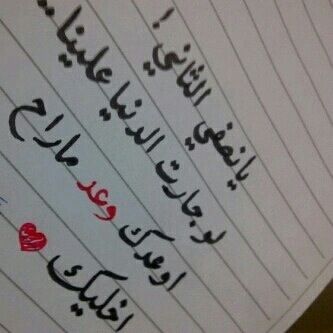 يانصفي الثاني !
لو جارت الدنيا علينا..
اوعدك وعد ماراح
اخليك